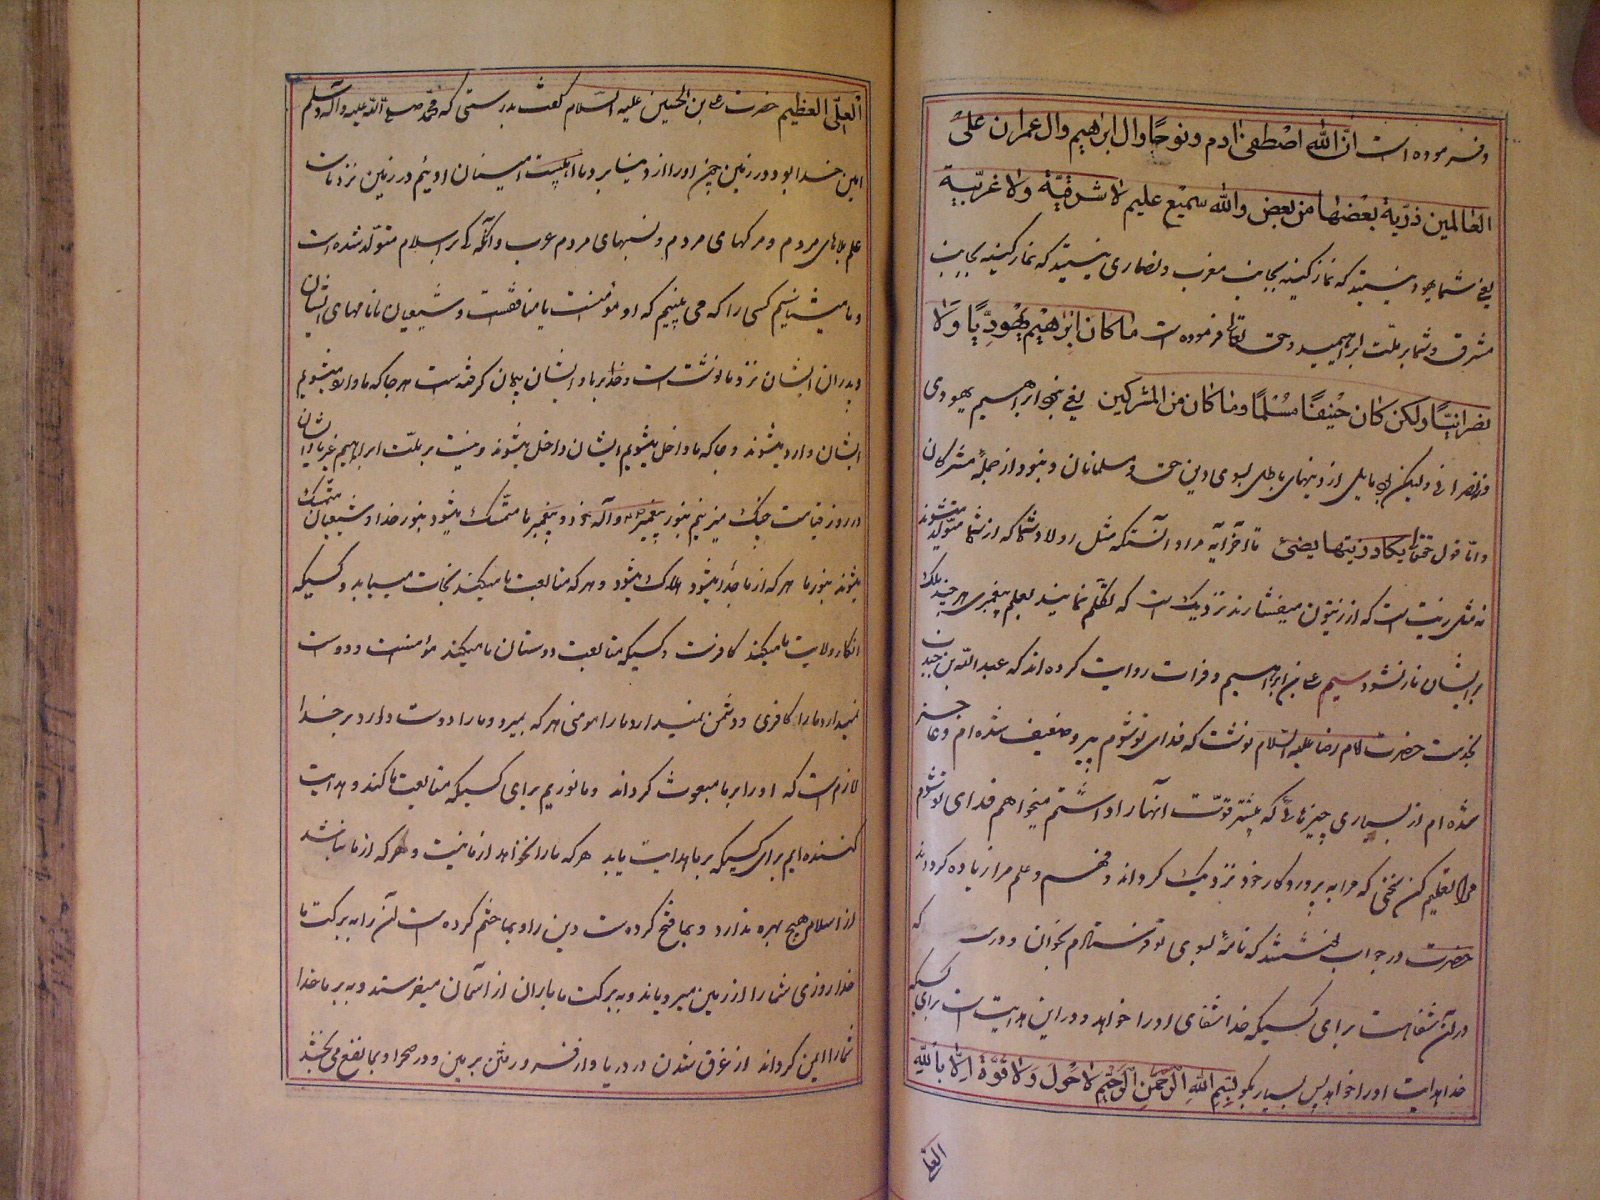 و فرموده است انّ الله اصْطفیٰ ادم و نوحًا و ال ابراهیم و ال عمران علی
العالمین ذرّیة بعْضها من بعض والله سمیع علیم لا شرقیّة ولا غربّیة
یعنی شما یهود نیستید که نماز کنید بجانب مغرب و نصاری نیستید که نماز کنید بجانب
مشرق و شما بر ملّت ابراهیمید و حق تعالی فرموده است ما کان ابْرٰهیم یهُودِیًّا وَلا
نصْرانیًّا ولکن کان حنیفًا مسْلمًا وما کان من المشرکین یعنی نبود ابراهیم یهودی
و نه نصرانی ولیکن بود مایل از دینهای باطل بسوی دین حق و مسلمانان و نبود از جمله مشرکان
و امّا قول حقتعالی یکاد زیتها یضیئ تا آخر آیه مراد آنستکه مثل اولاد شما که از شما متولّد میشوند
نه مثل زیتست که از زیتون میفشارند نزدیک است که تکلّم نمایند بعلم پیغمبری هر چند ملک
بر ایشان نازل نشود سیم علی بن ابراهیم و فرات روایت کرده اند که عبدالله بن جندب
بخدمت حضرت امام رضا علیه السّلام نوشت که فدای تو شوم پیر و ضعیف شده ام و عاجز
شده ام از بسیاری چیزهائی که پیشتر قوّت آنها را داشتم میخواهم فدای تو شوم
مرا تعلیم کن سخنی که مرا به پروردکار خود نزدیک کرداند و فهم و علم مرا زیاده کرداند
حضرت در جواب نوشتند که نامهٔ بسوی تو فرستادم بخوان و درست که
در آن شفاهست برای کسیکه خدا شفای او را خواهد و در این هدایت است برای کسیکه
خدا هدایت او را خواهد پس بسیار بکو بسْمِ الله الرّحمٰن الرّحیم لا حَول وَلا قوّة اِلّا بالله
العلی
اَلْعلیّ العظیم حضرت علی بن الحسین علیه السّلام کفت بدرستی که محمّد صلی الله علیه وآله وسلم
امین خدا بود در زمین چون او را از دنیا برد ما اهلبیت امینان اوئیم در زمین نزد ماست
علم بلاهای مردم و مرکهای مردم و نسبهای مردم عرب و آنکه که بر اسلام متولّد شده است
و ما میشناسیم کسی را که می بینیم که او مؤمنست یا منافقست و شیعیان ما نامهای ایشان
و پدران ایشان نزد ما نوشته است و خدا بر ما و ایشان پیمان کرفته است هر جا که ما وارد میشویم
ایشان وارد میشوند و جا که ما داخل میشویم ایشان داخل میشوند و نیست بر ملّت ابراهیم غیر ما و ایشان
در روز قیامت چنک میزنیم بنور پیغمبر و آله خود و پیغمبر ما متمسّک میشود بنور خدا و شیعیان متمسک
میشوند بنور ما هر که از ما جدا میشود هلاک میشود و هر که متابعت ما میکند نجات مییابد و کسیکه
انکار ولایت ما میکند کافرست و کسیکه متابعت دوستان ما میکند مؤمنست و دوست
نمیدارد ما را کافری و دشمن نمیدارد ما را مومنی هر که بمیرد و ما را دوست دارد بر خدا
لازم است که او را با ما مبعوث کرداند و ما نوریم برای کسیکه متابعت ما کند و هدایت
کننده ایم برای کسیکه بر ما هدایت یابد هر که ما را نخواهد از ما نیست و هر که از ما نباشد
از اسلام هیچ بهره ندارد و بما فتح کرده است دین را و بما ختم کرده است آن را به برکت ما
خدا روزی شما را از زمین میرویاند و به برکت ما باران از آسمان میفرستد و به برکت ما خدا
شما را ایمن کرداند از غرق شدن در دریا و از فرو رفتن بزمین و در صحرا و بما نفع می بخشد